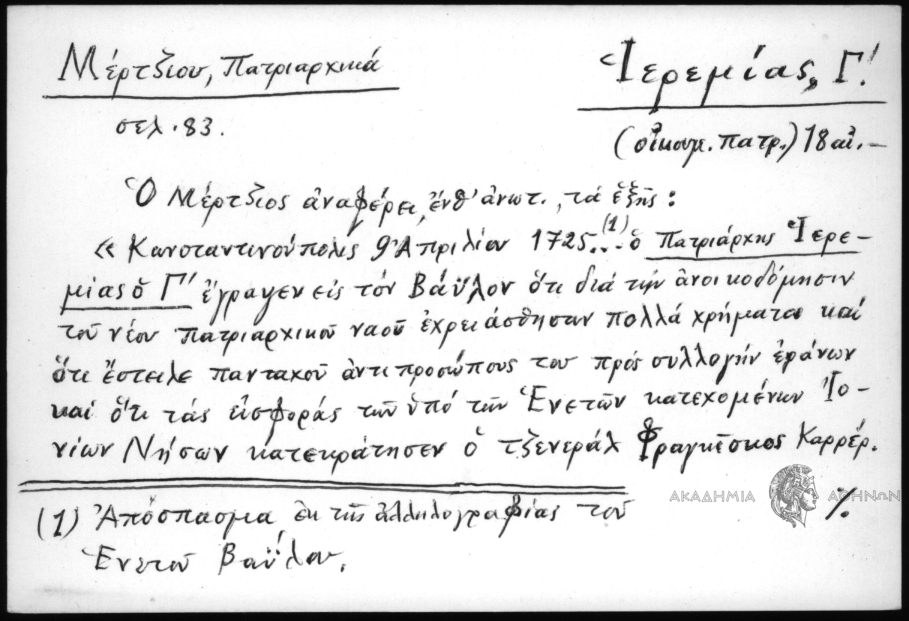 Μέρτζιου, Πατριαρχικά
σελ. 83.
Ἱερεμίας, Γ'.
(οἰκουμ. πατρ.) 18 αἰ.-
Ὁ Μέρτζιος ἀναφέρει, ἔνθ' ἀνωτ., τά ἑξῆς:
« Κωνσταντινούπολις 9 Ἀπριλίου 1725...(1) ὁ Πατριάρχης Ἱερε-
μίας ὁ Γ' ἔγραψεν εἰς τόν Βάϋλον ὅτι διά τήν ἀνοικοδόμησιν
τοῦ νέου πατριαρχικοῦ ναοῦ ἐχρειάσθησαν πολλά χρήματα καί
ὅτι ἔστειλε πανταχοῦ ἀντιπροσώπους του πρός συλλογήν ἐράνων
καί ὅτι τάς εἰσφοράς τῶν ὑπό τῶν Ἑνετῶν κατεχομένων Ἰο-
νίων Νήσων κατεκράτησεν ὁ τζενεράλ Φραγκῖσκος Καρρέρ.
(1) Ἀπόσπασμα ἐκ τῆς ἀλληλογραφίας τοῦ
Ἑνετοῦ Βαΰλου.
ΑΚΑΔΗΜΙΑ ΑΘΗΝΩΝ
%